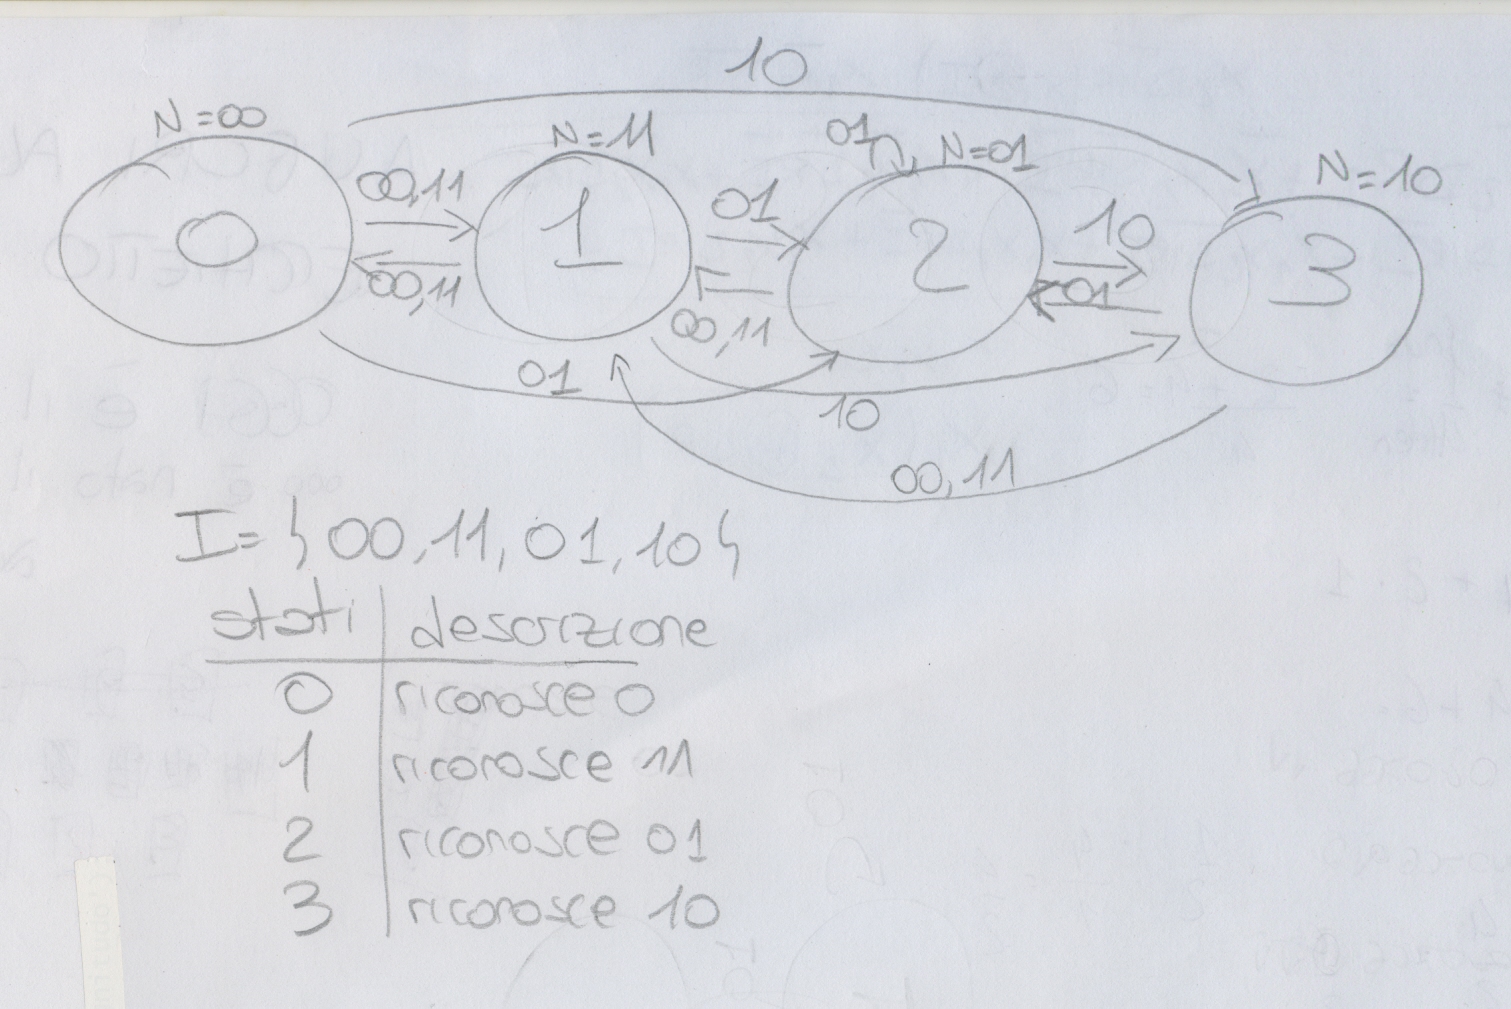 10
N=00
N=11
01
N=01
N=10
00,11
01
10
0
1
2
3
00,11
00,11
01
01
10
00,11
I={00,11,01,10}
stati descrizione
0 riconosce 0
1 riconosce 11
2 riconosce 01
3 riconosce 10